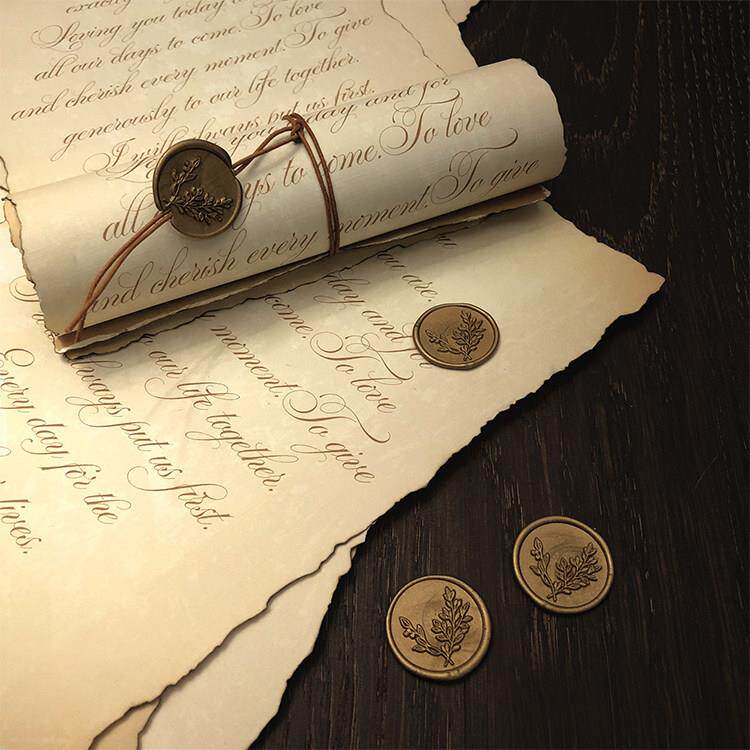 exactly
Loving you today
all our days to come. To love
and cherish every moment. To give
generously to our life together.
I will always put us first.
you day and for
all ys to come. To love
and cherish every moment. To give
you are.
day and fo
come. To love
moment. To give
our life together.
always put us first.
Every day for the
lives.